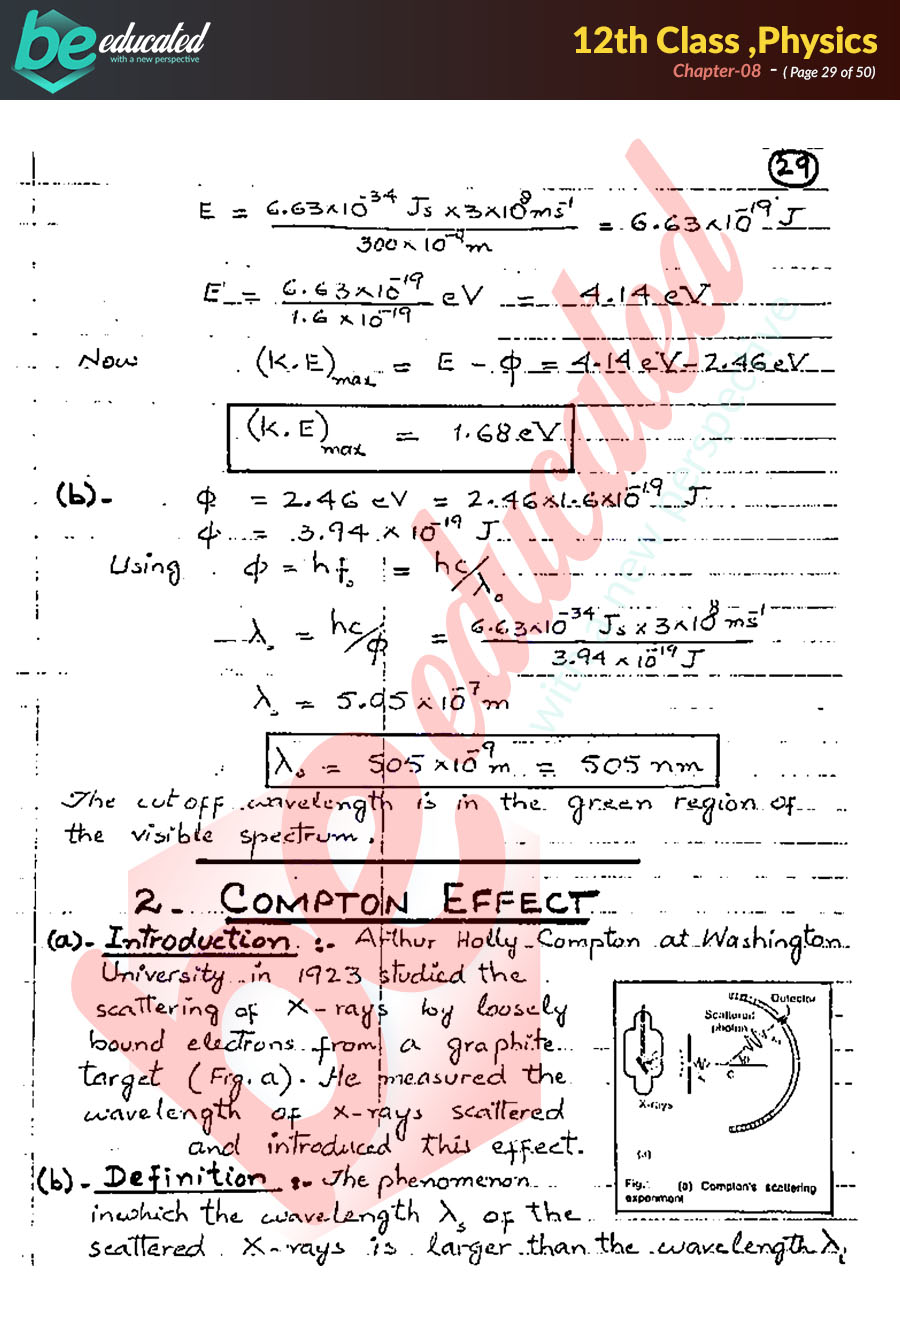 be educated
with a new perspective
12th Class ,Physics
Chapter-08 - ( Page 29 of 50)
29
E = 6.63×10⁻³⁴ Js × 3×10⁸ ms⁻¹ / 300×10⁻⁹ m = 6.63×10⁻¹⁹ J
E = 6.63×10⁻¹⁹ / 1.6×10⁻¹⁹ eV = 4.14 eV
Now (K.E)max = E - ϕ = 4.14 eV - 2.46 eV
(K.E)max = 1.68 eV
(b)- ϕ = 2.46 eV = 2.46×1.6×10⁻¹⁹ J
ϕ = 3.94 × 10⁻¹⁹ J
Using ϕ = hf₀ = hc/λ₀
λ₀ = hc/ϕ = 6.63×10⁻³⁴ Js × 3×10⁸ ms⁻¹ / 3.94×10⁻¹⁹ J
λ₀ = 5.05×10⁻⁷ m
λ₀ = 505×10⁻⁹ m = 505 nm
The cut off wavelength is in the green region of
the visible spectrum.
2- COMPTON EFFECT
(a)- Introduction :- Arthur Holly Compton at Washington
University in 1923 studied the
scattering of X-rays by loosely
bound electrons from a graphite
target (Fig. a). He measured the
wavelength of x-rays scattered
and introduced this effect.
Detector
Scattered
photon
X-rays
(a)
Fig: (a) Compton's scattering
experiment
(b)- Definition :- The phenomenon
in which the wavelength λs of the
scattered X-rays is larger than the wavelength λi
be educated
with a new perspective